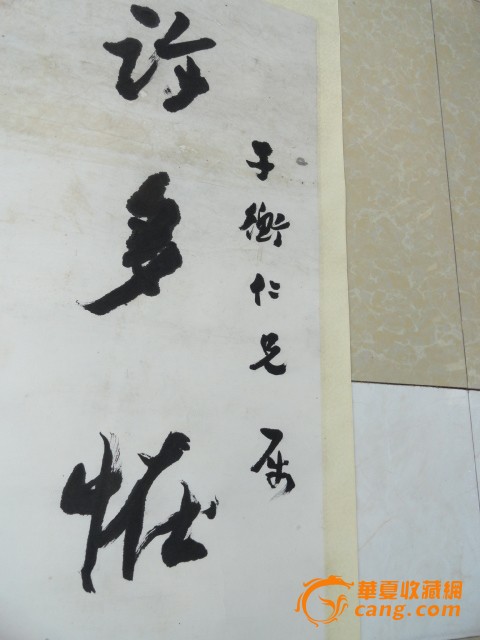 子衡仁兄属
多恠
華夏收藏網
cang.com